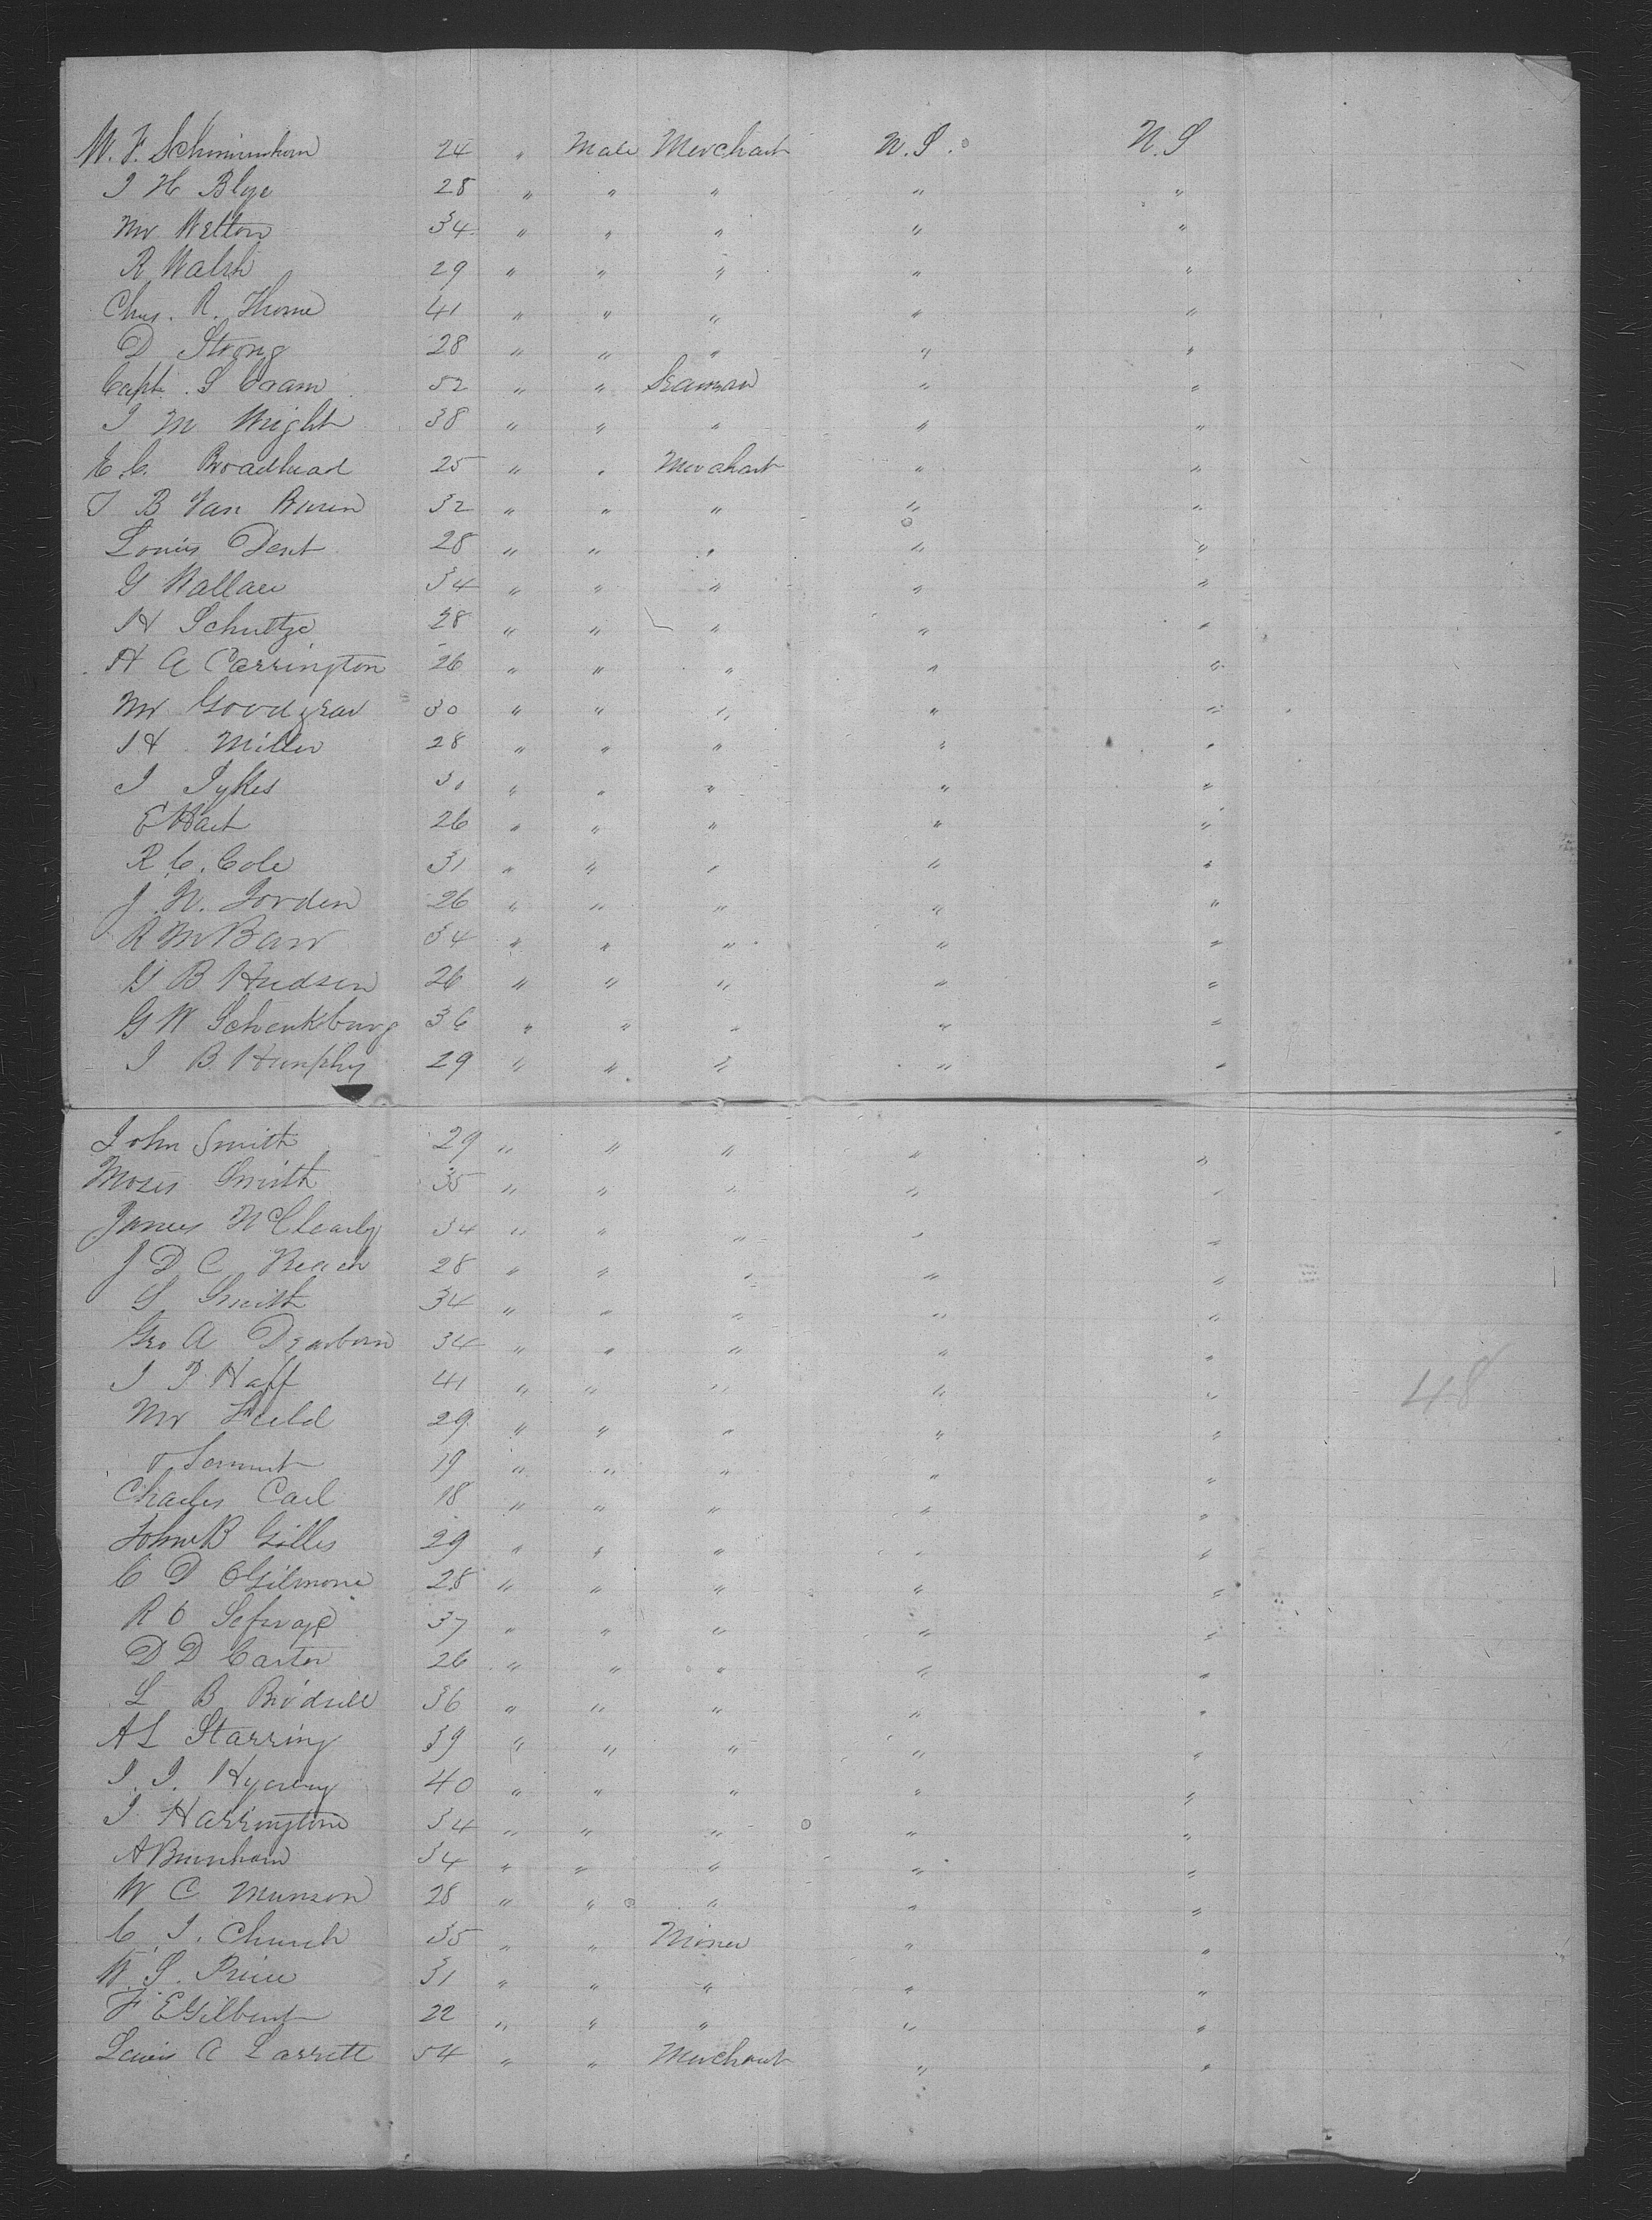 W. F. Schimmerhorn 24 " Male Merchant U.S. U.S
J H Blye 28 " " " " "
Mr Welton 34 " " " " "
R Walsh 29 " " " " "
Chas. R. Thorne 41 " " " " "
D Strong 28 " " " " "
Capt. S 52 " " Seaman " "
J M Wright 38 " " " " "
E. C. Broadhead 25 " " Merchant " "
T B Van Buren 32 " " " " "
Louis Dent 28 " " " " "
G Wallace 34 " " " " "
H Schultze 28 " " " " "
H A Carrington 26 " " " " "
Mr Goodyear 30 " " " " "
H Miller 28 " " " " "
J Sykes 30 " " " " "
E Hart 26 " " " " "
R. C. Cole 31 " " " " "
J. W. Jorden 26 " " " " "
R M Barr 34 " " " " "
G B Hudson 26 " " " " "
G W Schenkburg 36 " " " " "
J B Humphy 29 " " " " "
John Smith 29 " " " " "
Moses Smith 35 " " " " "
James McClearly 34 " " " " "
J D C Beach 28 " " " " "
S Smith 34 " " " " "
Geo A Dearborn 34 " " " " "
J P Haff 41 " " " " "
48
Mr Field 29 " " " " "
19 " " " " "
Charles Carl 18 " " " " "
John B Gilles 29 " " " " "
C D Gilmore 28 " " " " "
R O 37 " " " " "
D D Carter 26 " " " " "
L B 36 " " " " "
A L Starring 39 " " " " "
J. J. 40 " " " " "
J Harrington 34 " " " " "
A Burnham 34 " " " " "
W C Munson 28 " " " " "
C. J. Church 35 " " Miner " "
W. S. Price 31 " " " " "
F E Gilbert 22 " " " " "
Lewis A Larrett 54 " " Merchant " "